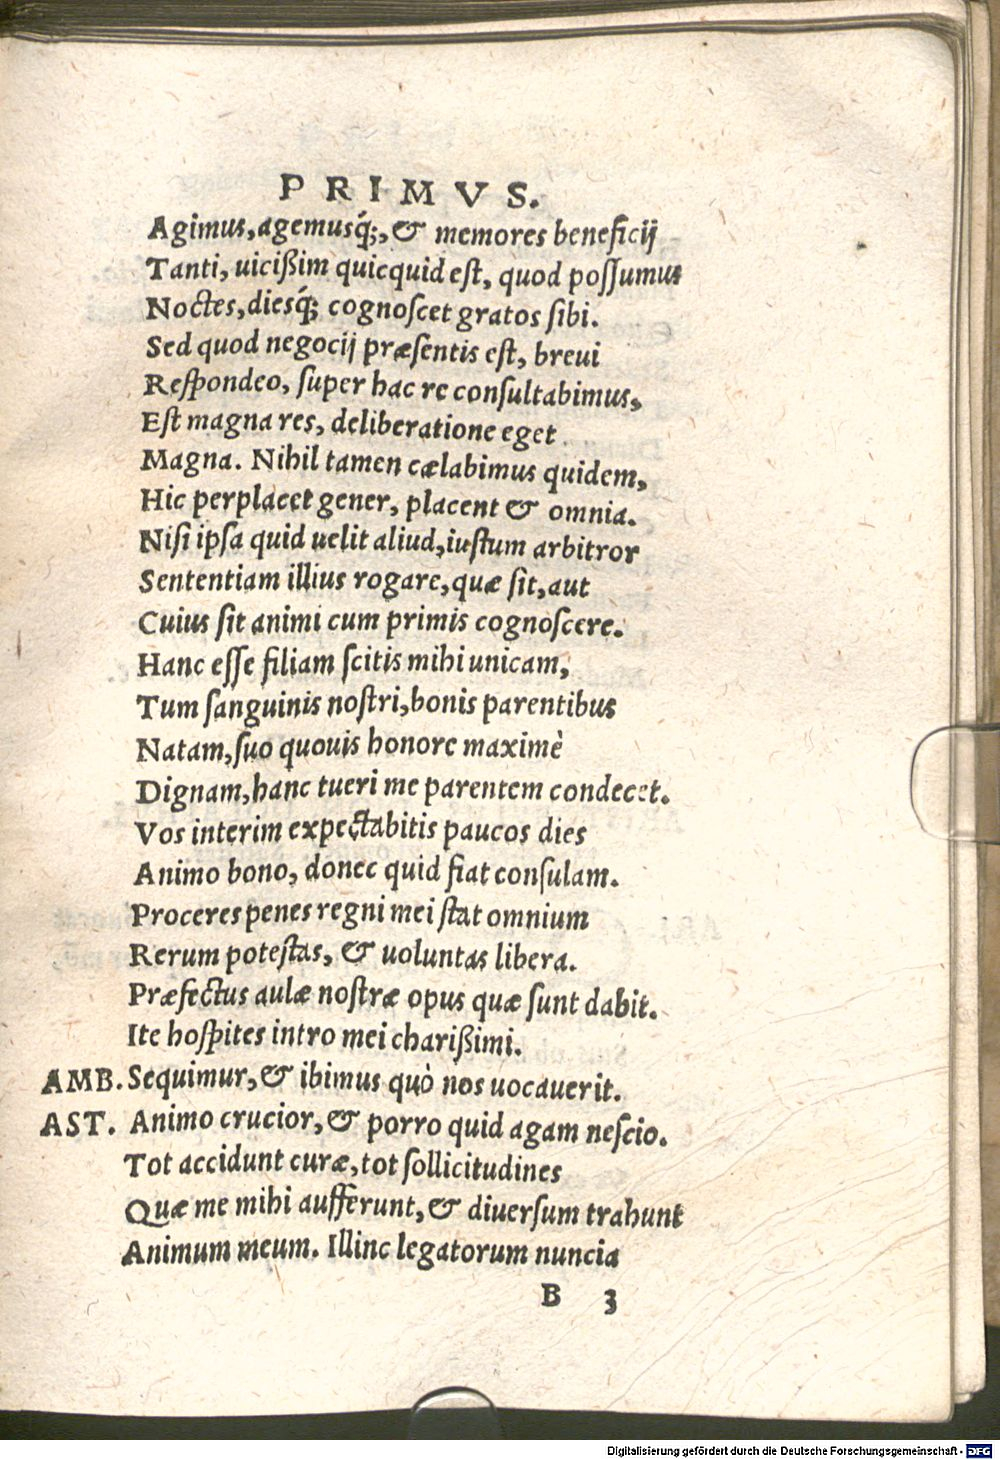 PRIMVS.
Agimus, agemusq́;, & memores beneficij
Tanti, uicißim quicquid est, quod possumus
Noctes, diesq́; cognoscet gratos sibi.
Sed quod negocij præsentis est, breui
Respondeo, super hac re consultabimus,
Est magna res, deliberatione eget
Magna. Nihil tamen cælabimus quidem,
Hic perplacet gener, placent & omnia.
Nisi ipsa quid uelit aliud, iustum arbitror
Sententiam illius rogare, quæ sit, aut
Cuius sit animi cum primis cognoscere.
Hanc esse filiam scitis mihi unicam,
Tum sanguinis nostri, bonis parentibus
Natam, suo quouis honore maximè
Dignam, hanc tueri me parentem condecet.
Vos interim expectabitis paucos dies
Animo bono, donec quid fiat consulam.
Proceres penes regni mei stat omnium
Rerum potestas, & uoluntas libera.
Præfectus aulæ nostræ opus quæ sunt dabit.
Ite hospites intro mei charißimi.
AMB. Sequimur, & ibimus quò nos uocauerit.
AST. Animo crucior, & porro quid agam nescio.
Tot accidunt curæ, tot sollicitudines
Quæ me mihi aufferunt, & diuersum trahunt
Animum meum. Illinc legatorum nuncia
B 3
Digitalisierung gefördert durch die Deutsche Forschungsgemeinschaft - DFG